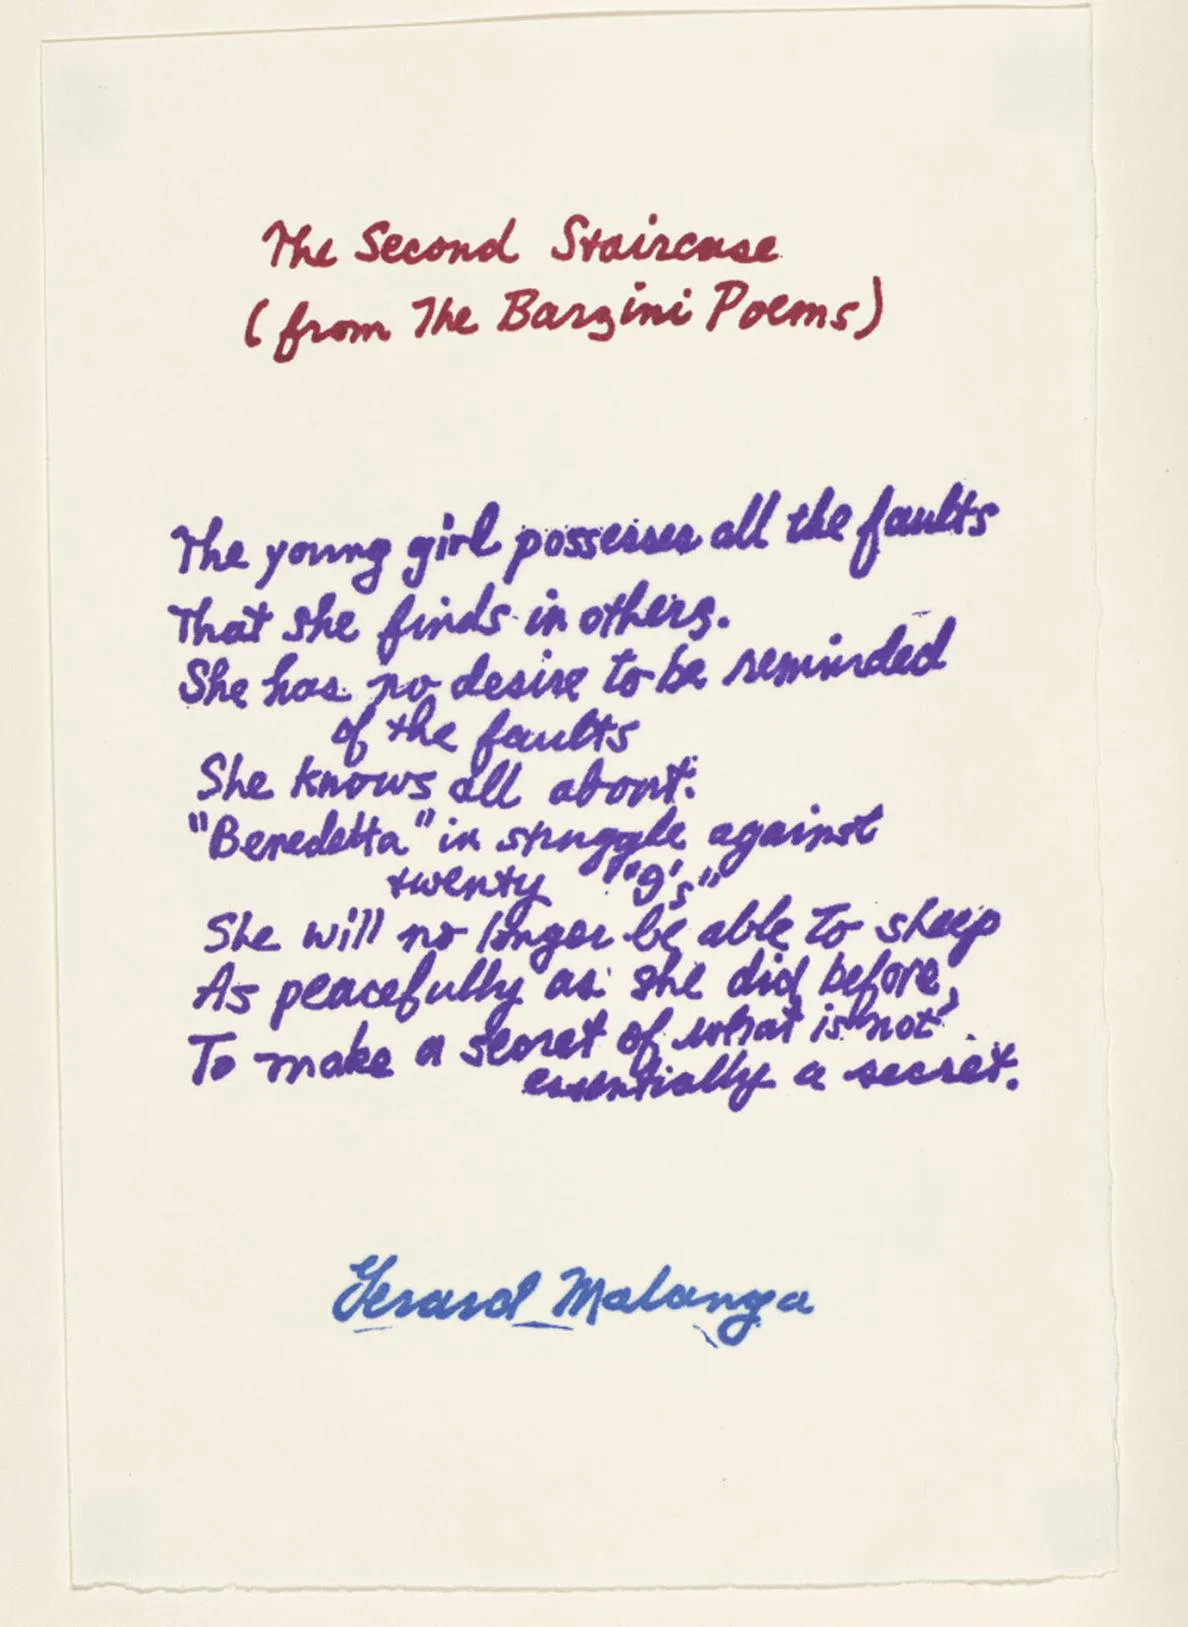 The Second Staircase
(from The Barzini Poems)
The young girl possesses all the faults
That she finds in others.
She has no desire to be reminded
of the faults
She knows all about:
"Benedetta" in struggle against
twenty "'9's"
She will no longer be able to sleep
As peacefully as she did before,
To make a secret of what is "not"
essentially a secret.
Gerard Malanga